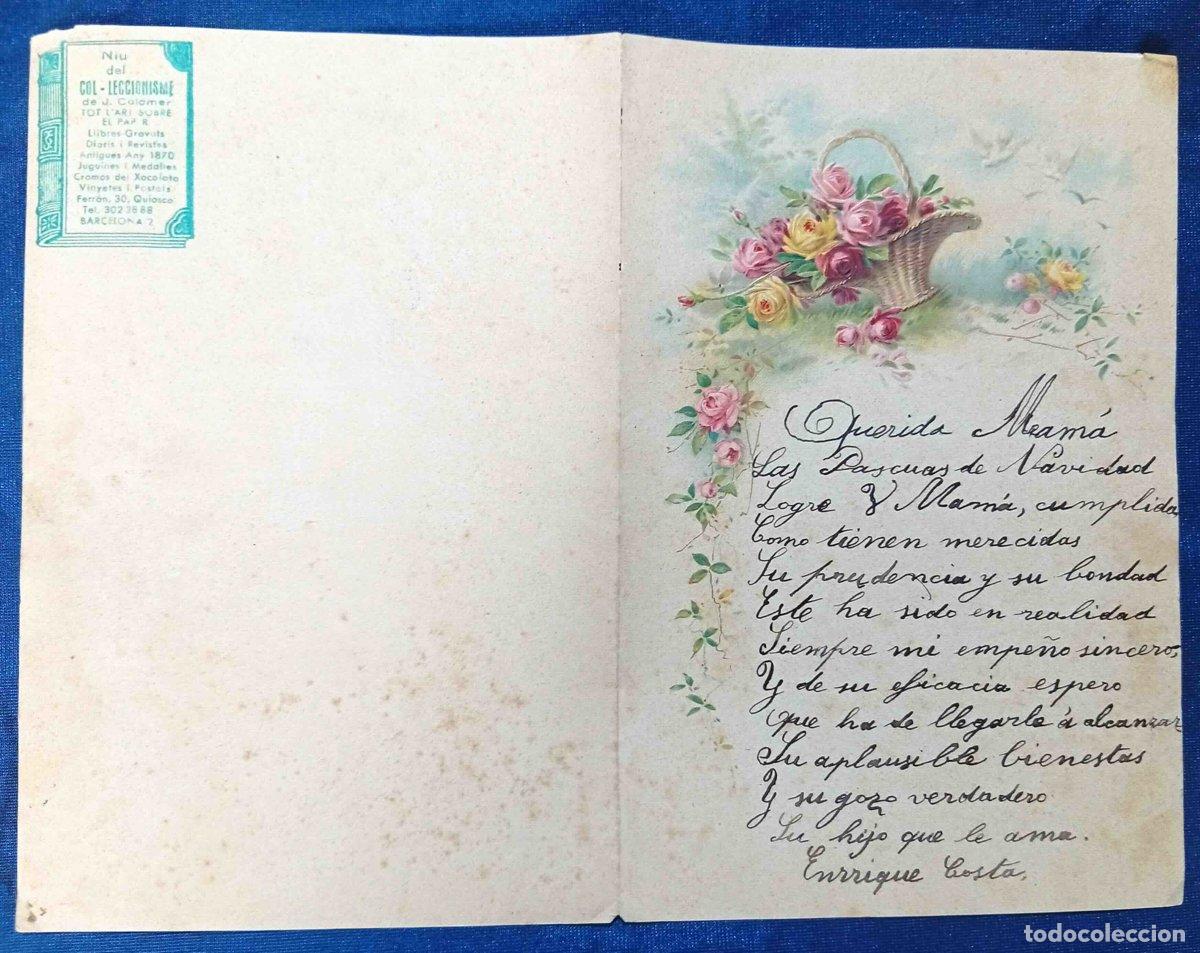 Niu
del
COL-LECCIONISME
de J. Colomer
TOT L'ART SOBRE
EL PAPER
Llibres-Gravats
Diaris i Revistes
Antigues Any 1870
Juguines i Medalles
Cromos del Xocolata
Vinyetes i Postals
Ferrán, 30, Quiosco
Tel. 302 36 88
BARCELONA 2
Querida Mamá
Las Pascuas de Navidad
Logre V Mamá, cumplidas
Como tienen merecidas
Su prudencia y su bondad
Este ha sido en realidad
Siempre mi empeño sincero,
Y de su eficacia espero
que ha de llegarle á alcanzar
Su aplausible bienestas
Y su gozo verdadero
Su hijo que le ama.
Enrrique Costa.
todocoleccion